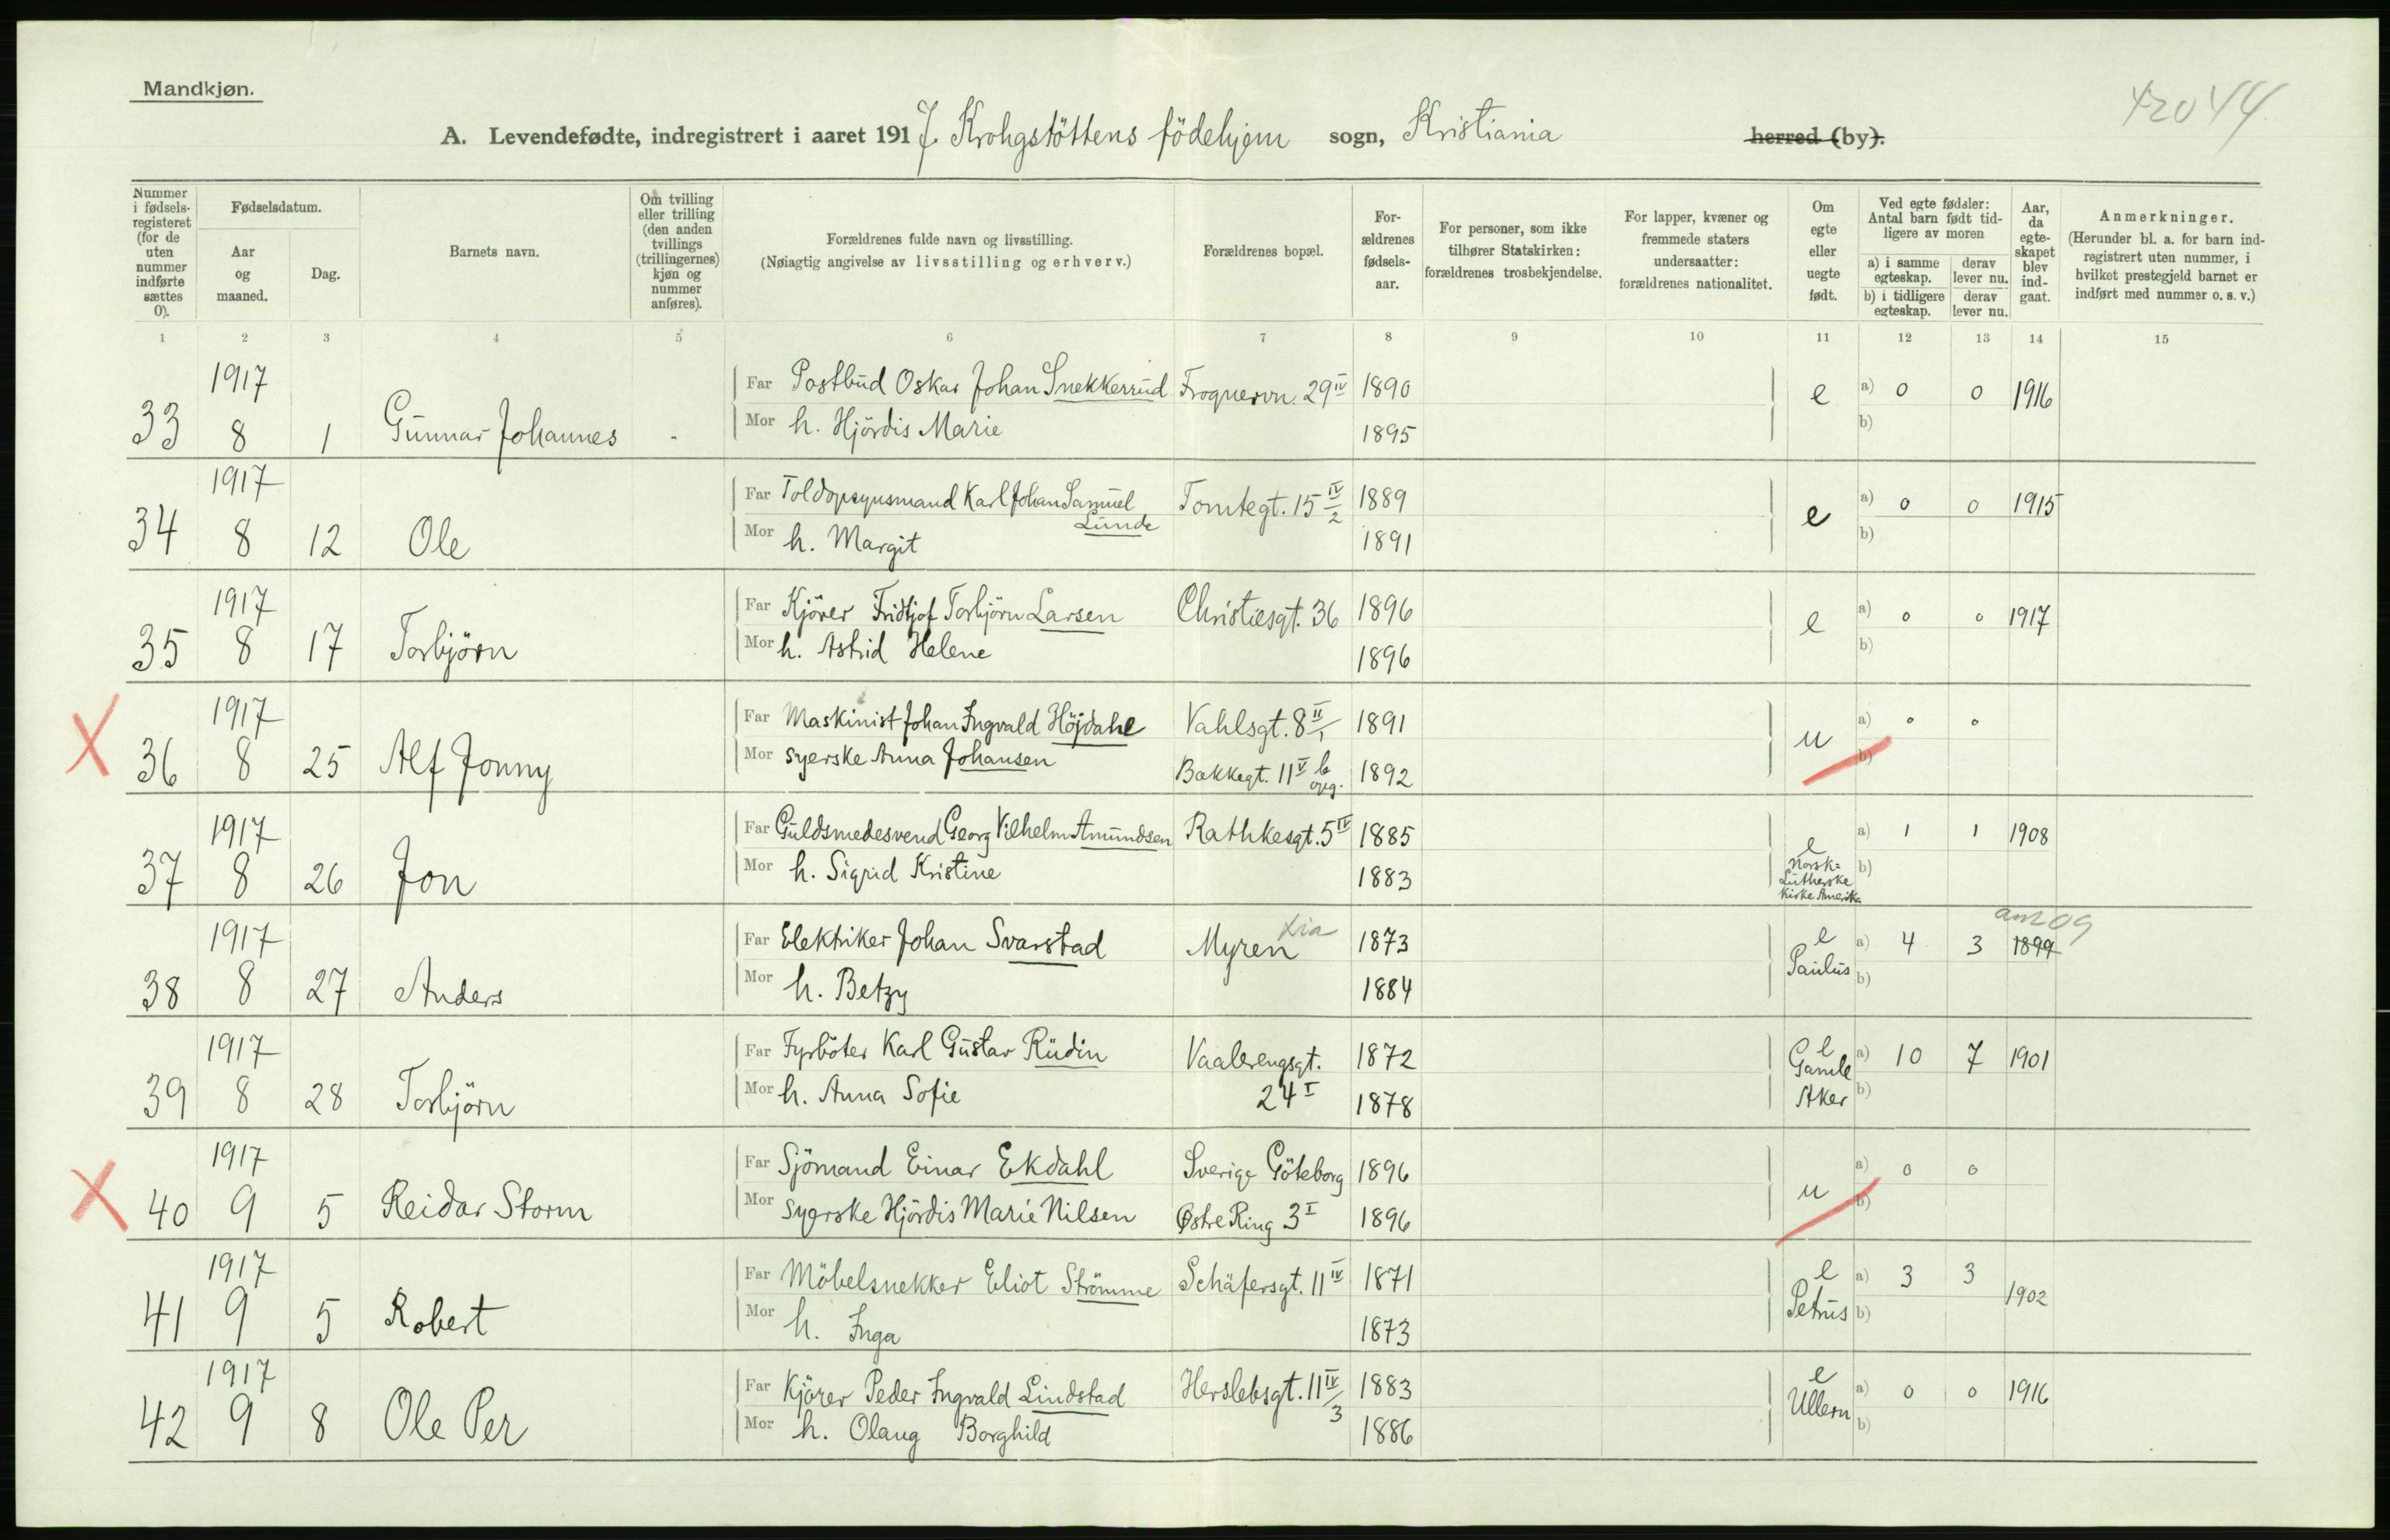 Mandkjøn.
42044
A. Levendefødte, indregistrert i aaret 1917. Krohgstöttens födehjem sogn, Kristiania herred (by).
Nummer i fødsels-registeret (for de uten nummer indførte sættes 0).
Fødselsdatum.
Aar og maaned.
Dag.
Barnets navn.
Om tvilling eller trilling (den anden tvillings (trillingernes) kjøn og nummer anføres).
Forældrenes fulde navn og livsstilling.
(Nøiagtig angivelse av livsstilling og erhverv.)
Forældrenes bopæl.
For-ældrenes fødsels-aar.
For personer, som ikke tilhører Statskirken: forældrenes trosbekjendelse.
For lapper, kvæner og fremmede staters undersaatter: forældrenes nationalitet.
Om egte eller uegte født.
Ved egte fødsler: Antal barn født tid-ligere av moren
a) i samme egteskap. derav lever nu.
b) i tidligere egteskap. derav lever nu.
Aar, da egte-skapet blev ind-gaat.
Anmerkninger.
(Herunder bl. a. for barn ind-registrert uten nummer, i hvilket prestegjeld barnet er indført med nummer o. s. v.)
1 2 3 4 5 6 7 8 9 10 11 12 13 14 15
1917 Far Postbud Oskar Johan Snekkerrud Frognervn. 29 IV 1890 e a) 0 0 1916
33 8 1 Gunnar Johannes - Mor h. Hjördis Marie 1895 b)
1917 Far Toldopsynsmand Karl Johan Samuel Lunde Tomtegt. 15 IV/2 1889 e a) 0 0 1915
34 8 12 Ole Mor h. Margit 1891 b)
1917 Far Kjörer Fridtjof Torbjörn Larsen Christiesgt. 36 1896 e a) 0 0 1917
35 8 17 Torbjörn Mor h. Astrid Helene 1896 b)
1917 Far Maskinist Johan Ingvald Höjdahl Vahlsgt. 8 II/1 1891 u a) 0 0
X 36 8 25 Alf Jonny Mor syerske Anna Johansen Bakkegt. 11 V b opg. 1892 b)
1917 Far Guldsmedesvend Georg Vilhelm Amundsen Rathkesgt. 5 IV 1885 e a) 1 1 1908
37 8 26 Jon Mor h. Sigrid Kristine 1883 Norsk-Lutherske Kirke Amerika b)
1917 Far Elektriker Johan Svarstad Myren Kria 1873 e a) 4 3 1899 anm 09
38 8 27 Anders Mor h. Betzy 1884 Paulus b)
1917 Far Fyrböter Karl Gustav Rudin Vaalerengsgt. 1872 e a) 10 7 1901
39 8 28 Torbjörn Mor h. Anna Sofie 24 I 1878 Gamle Aker b)
1917 Far Sjömand Einar Ekdahl Sverige Göteborg 1896 u a) 0 0
X 40 9 5 Reidar Storm Mor syerske Hjördis Marie Nilsen Østre Ring 3 I 1896 b)
1917 Far Möbelsnekker Eliot Strömme Schäfersgt. 11 IV 1871 e a) 3 3 1902
41 9 5 Robert Mor h. Inga 1873 Petrus b)
1917 Far Kjörer Peder Ingvald Lindstad Herslebsgt. 11 IV/3 1883 e a) 0 0 1916
42 9 8 Ole Per Mor h. Olaug Borghild 1886 Ullern b)